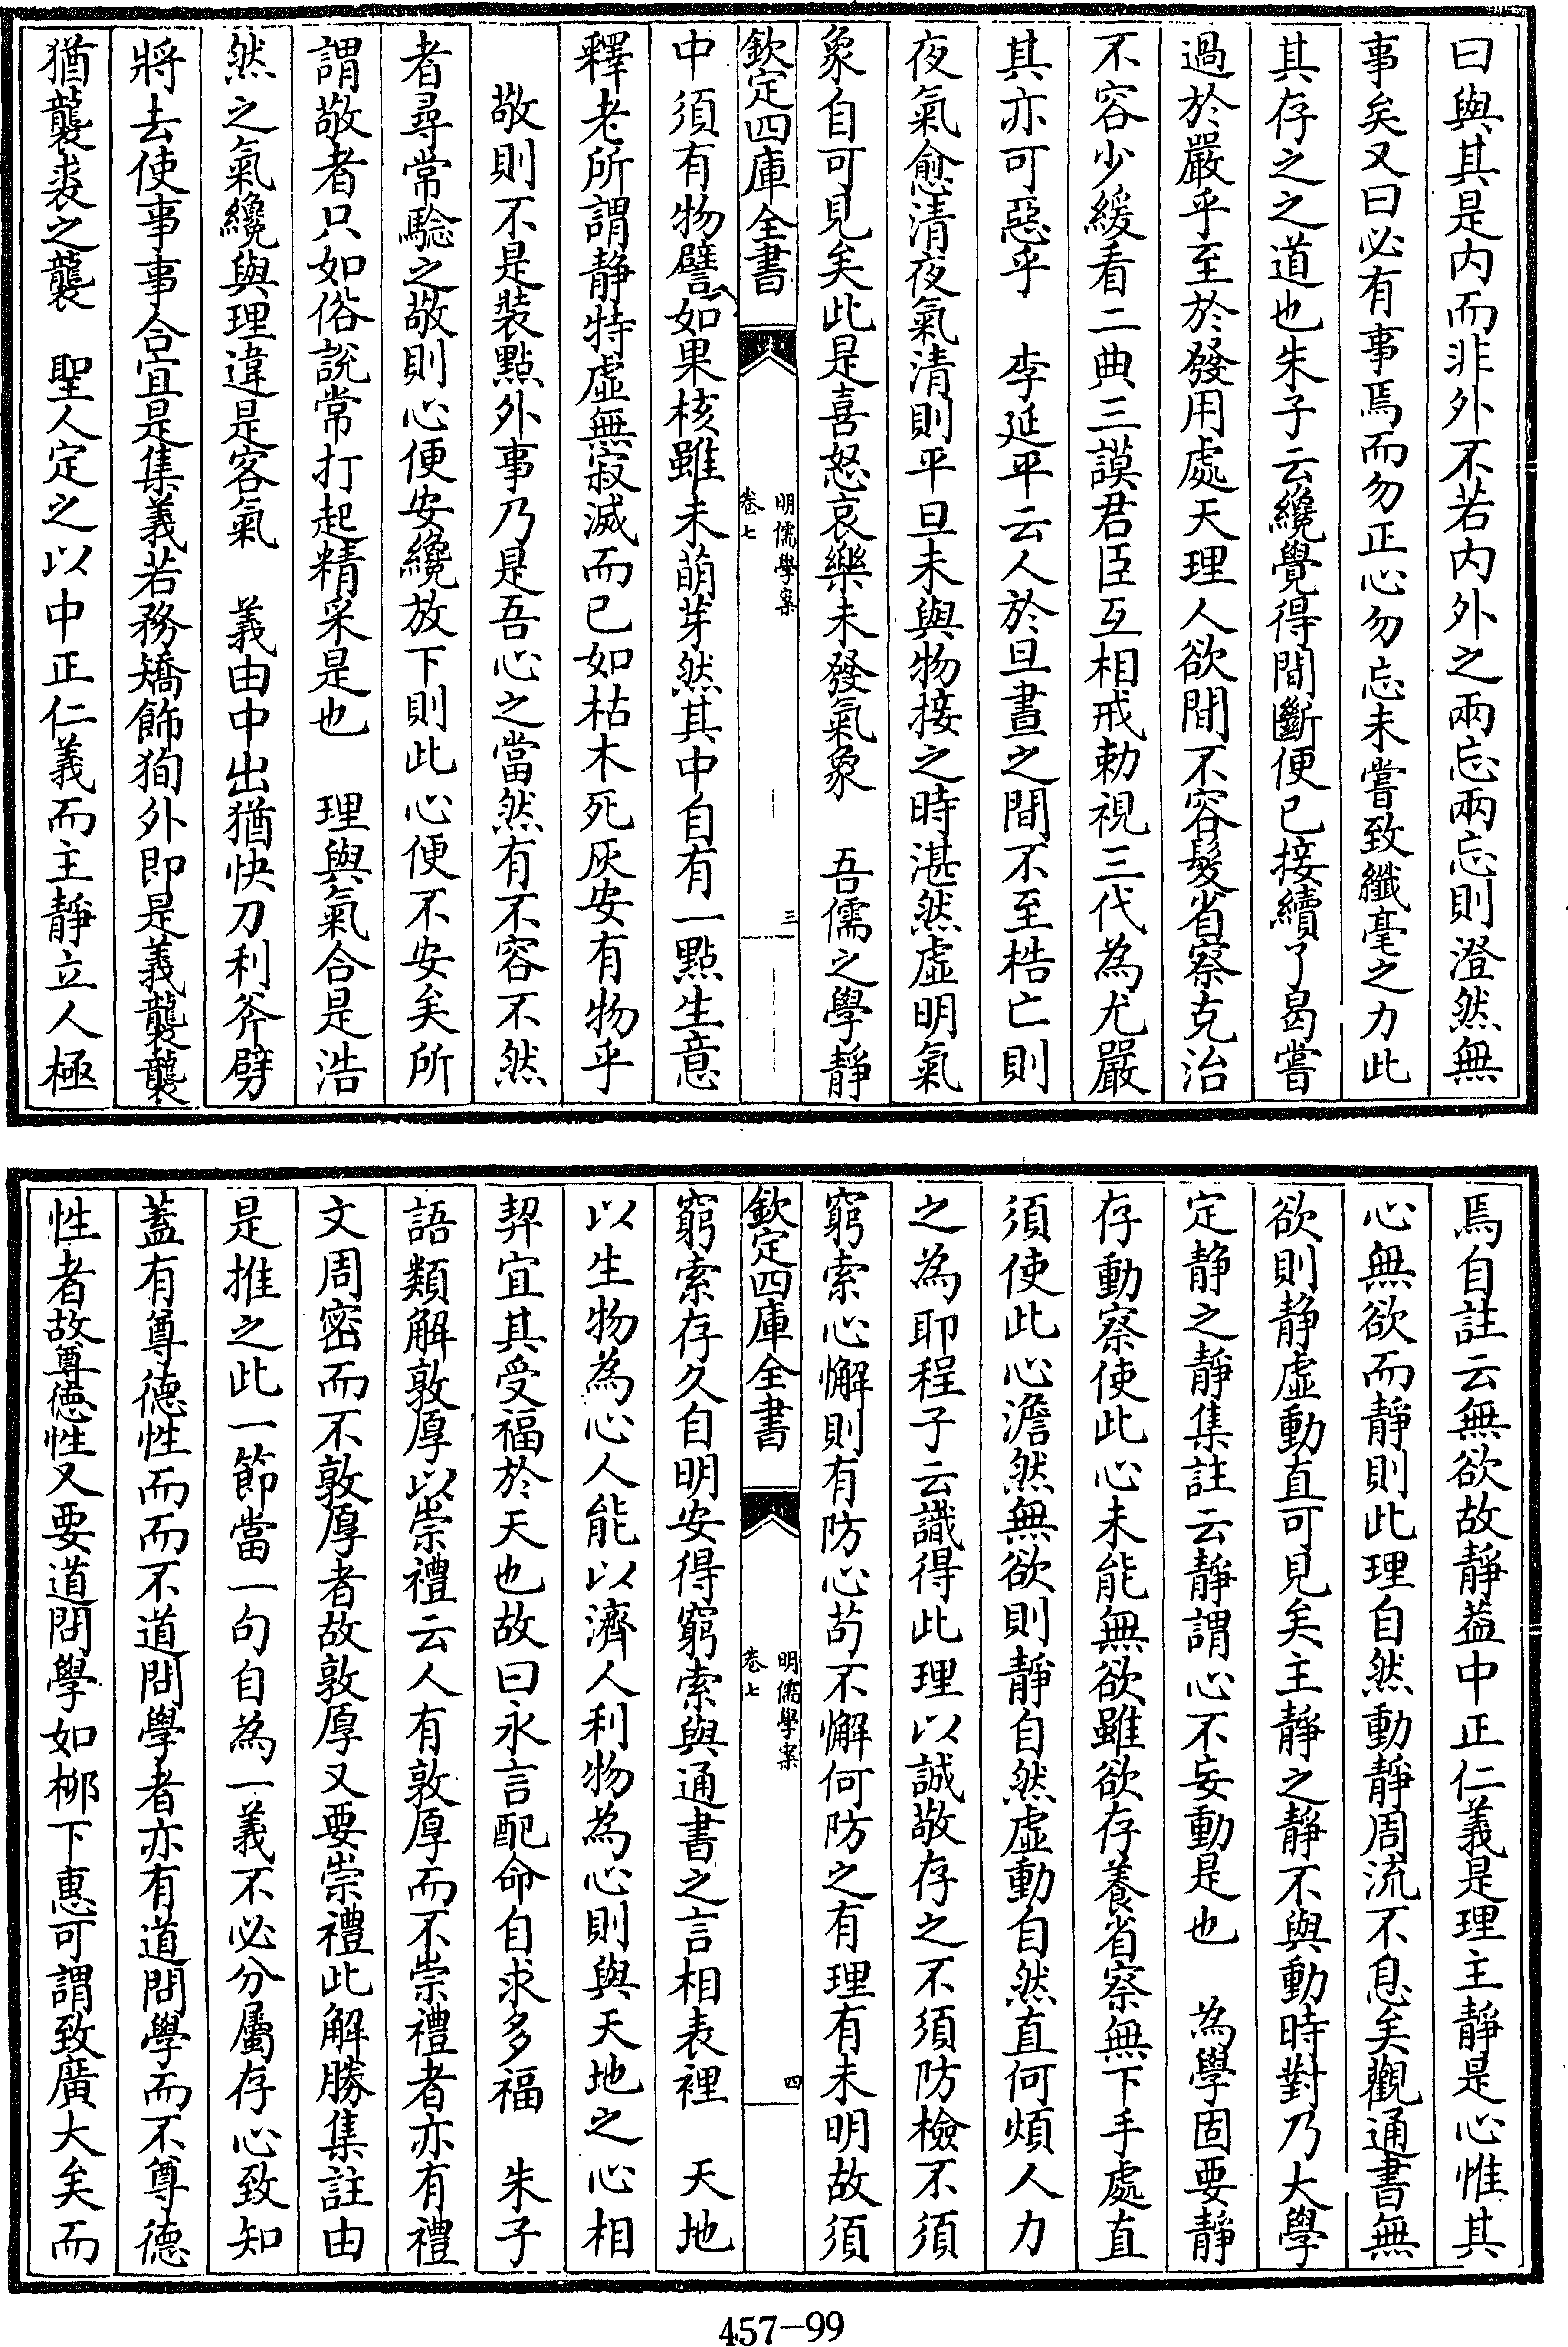 曰與其是内而非外不若内外之兩忘兩忘則澄然無
事矣又曰必有事焉而勿正心勿忘未嘗致纖毫之力此
其存之之道也朱子云纔覺得間斷便已接續了曷嘗
過於嚴乎至於發用處天理人欲間不容髮省察克治
不容少緩看二典三謨君臣互相戒勅視三代為尤嚴
其亦可惡乎　李延平云人於旦晝之間不至梏亡則
夜氣愈清夜氣清則平旦未與物接之時湛然虛明氣
象自可見矣此是喜怒哀樂未發氣象　吾儒之學靜
欽定四庫全書
明儒學案
卷七
三
中須有物譬如果核雖未萌芽然其中自有一點生意
釋老所謂静特虛無寂滅而已如枯木死灰安有物乎
敬則不是裝點外事乃是吾心之當然有不容不然
者尋常騐之敬則心便安纔放下則此心便不安矣所
謂敬者只如俗說常打起精采是也　理與氣合是浩
然之氣纔與理違是客氣　義由中出猶快刀利斧劈
將去使事事合宜是集義若務矯飾狥外即是義襲襲
猶襲裘之襲　聖人定之以中正仁義而主靜立人極
焉自註云無欲故靜葢中正仁義是理主靜是心惟其
心無欲而靜則此理自然動靜周流不息矣觀通書無
欲則静虛動直可見矣主靜之靜不與動時對乃大學
定静之靜集註云靜謂心不妄動是也　為學固要靜
存動察使此心未能無欲雖欲存養省察無下手處直
須使此心澹然無欲則靜自然虛動自然直何煩人力
之為耶程子云識得此理以誠敬存之不須防檢不須
窮索心懈則有防心苟不懈何防之有理有未明故須
欽定四庫全書
明儒學案
卷七
四
窮索存久自明安得窮索與通書之言相表裡　天地
以生物為心人能以濟人利物為心則與天地之心相
契宜其受福於天也故曰永言配命自求多福　朱子
語類解敦厚以崇禮云人有敦厚而不崇禮者亦有禮
文周密而不敦厚者故敦厚又要崇禮此解勝集註由
是推之此一節當一句自為一義不必分屬存心致知
蓋有尊德性而而不道問學者亦有道問學而不尊德
性者故尊德性又要道問學如栁下惠可謂致廣大矣而
457-99